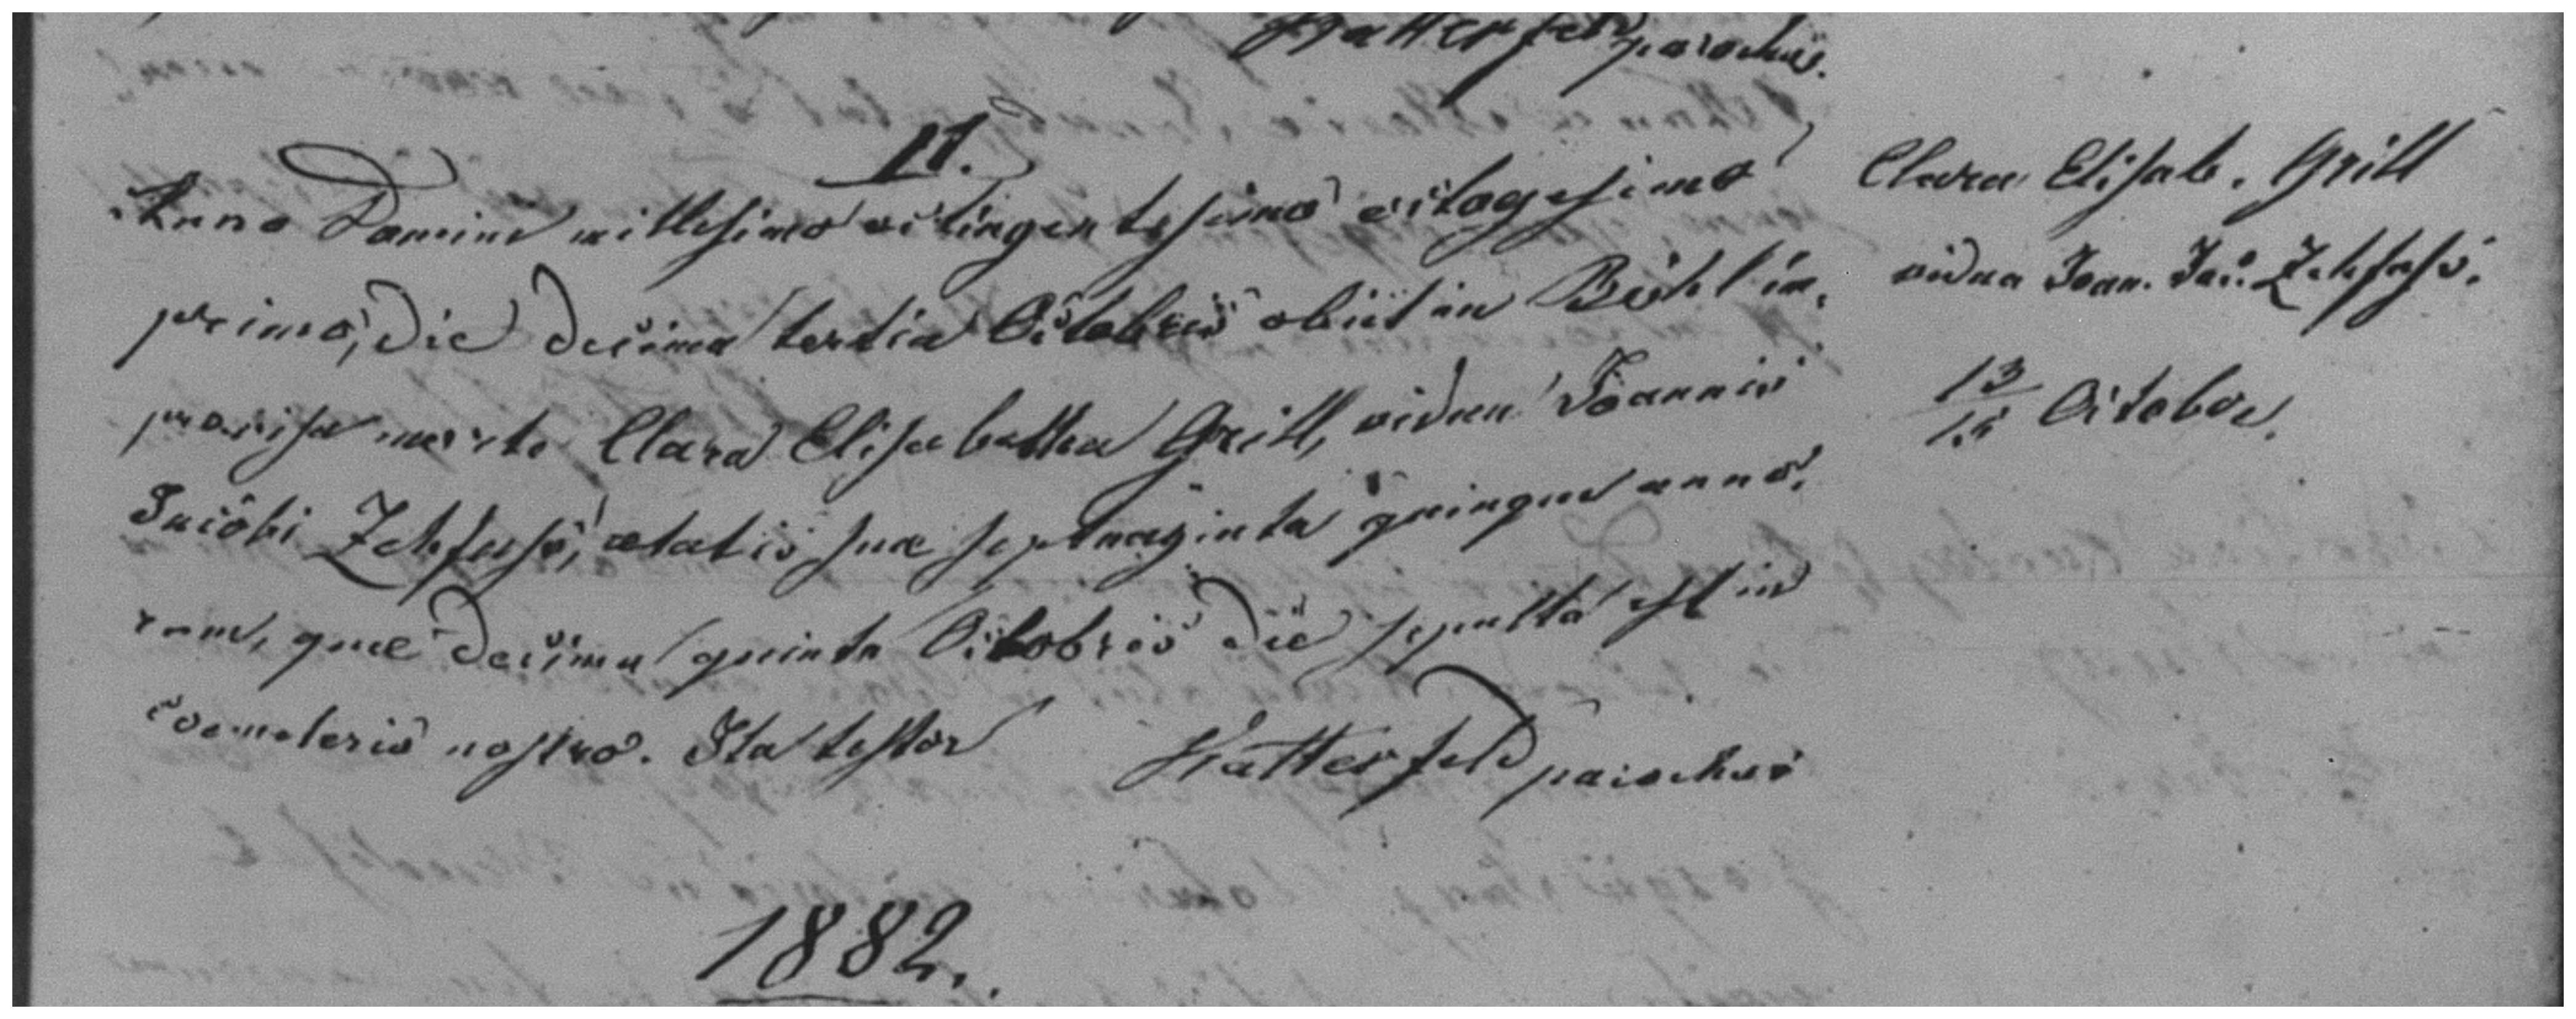 Hatterfeld parochus.
11.
Anno Domini millesimo octingentesimo octogesimo
primo, die decima tertia Octobris obiit in Böhl im,
provisa morte Clara Elisabetha Grill, vidua Joannis
Jacobi Zehfuss, ætatis suæ septuaginta quinque anno,
rum, quæ decima quinta Octobris die sepulta est in
coemeterio nostro. Ita testor Hatterfeld parochus
Clara Elisab. Grill
vidua Joan. Jac. Zehfuss.
13/15 October.
1882.